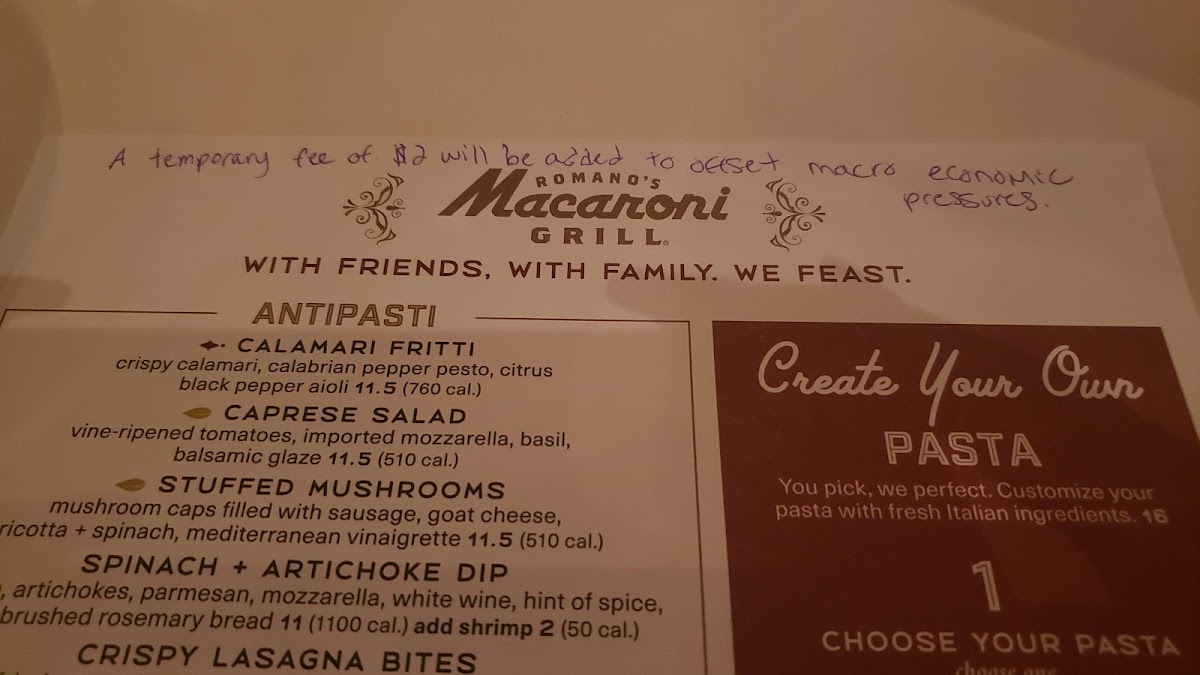 A temporary fee of $2 will be added to offset macro economic
pressures.
ROMANO'S
Macaroni
GRILL®
WITH FRIENDS, WITH FAMILY. WE FEAST.
ANTIPASTI
CALAMARI FRITTI
crispy calamari, calabrian pepper pesto, citrus
black pepper aioli 11.5 (760 cal.)
CAPRESE SALAD
vine-ripened tomatoes, imported mozzarella, basil,
balsamic glaze 11.5 (510 cal.)
STUFFED MUSHROOMS
mushroom caps filled with sausage, goat cheese,
ricotta + spinach, mediterranean vinaigrette 11.5 (510 cal.)
SPINACH + ARTICHOKE DIP
, artichokes, parmesan, mozzarella, white wine, hint of spice,
brushed rosemary bread 11 (1100 cal.) add shrimp 2 (50 cal.)
CRISPY LASAGNA BITES
Create Your Own
PASTA
You pick, we perfect. Customize your
pasta with fresh Italian ingredients. 16
1
CHOOSE YOUR PASTA
choose one